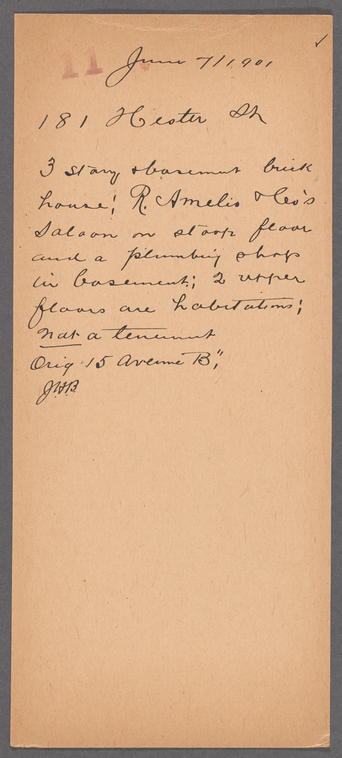 11
June 7/1901
181 Hester St
3 story & basement brick
house; R. Amelio & Co's
Saloon on stoop floor
and a plumbing shop
in basement; 2 upper
floors are habitations;
not a tenement
Orig 15 Avenue B";
JHB